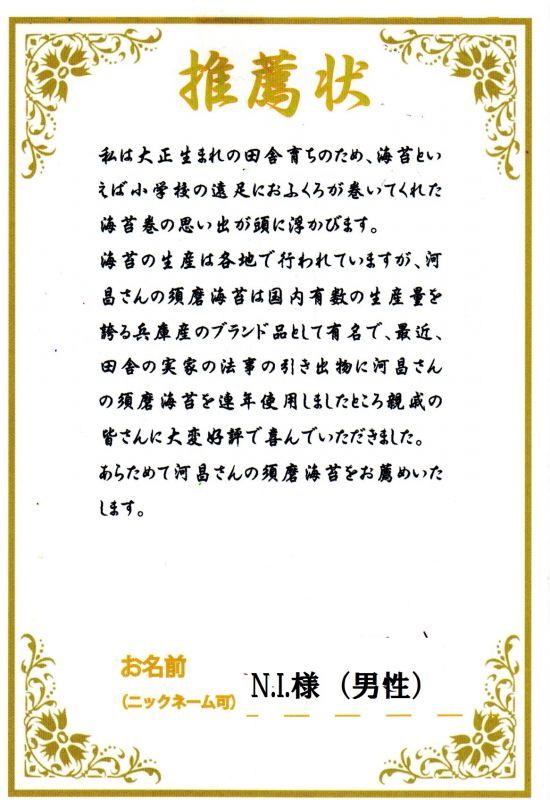 推薦状
私は大正生まれの田舎育ちのため、海苔とい
えば小学校の遠足におふくろが巻いてくれた
海苔巻の思い出が頭に浮かびます。
海苔の生産は各地で行われていますが、河
昌さんの須磨海苔は国内有数の生産量を
誇る兵庫産のブランド品として有名で、最近、
田舎の実家の法事の引き出物に河昌さん
の須磨海苔を連年使用しましたところ親戚の
皆さんに大変好評で喜んでいただきました。
あらためて河昌さんの須磨海苔をお薦めいた
します。
お名前
(ニックネーム可)
N.I.様（男性）